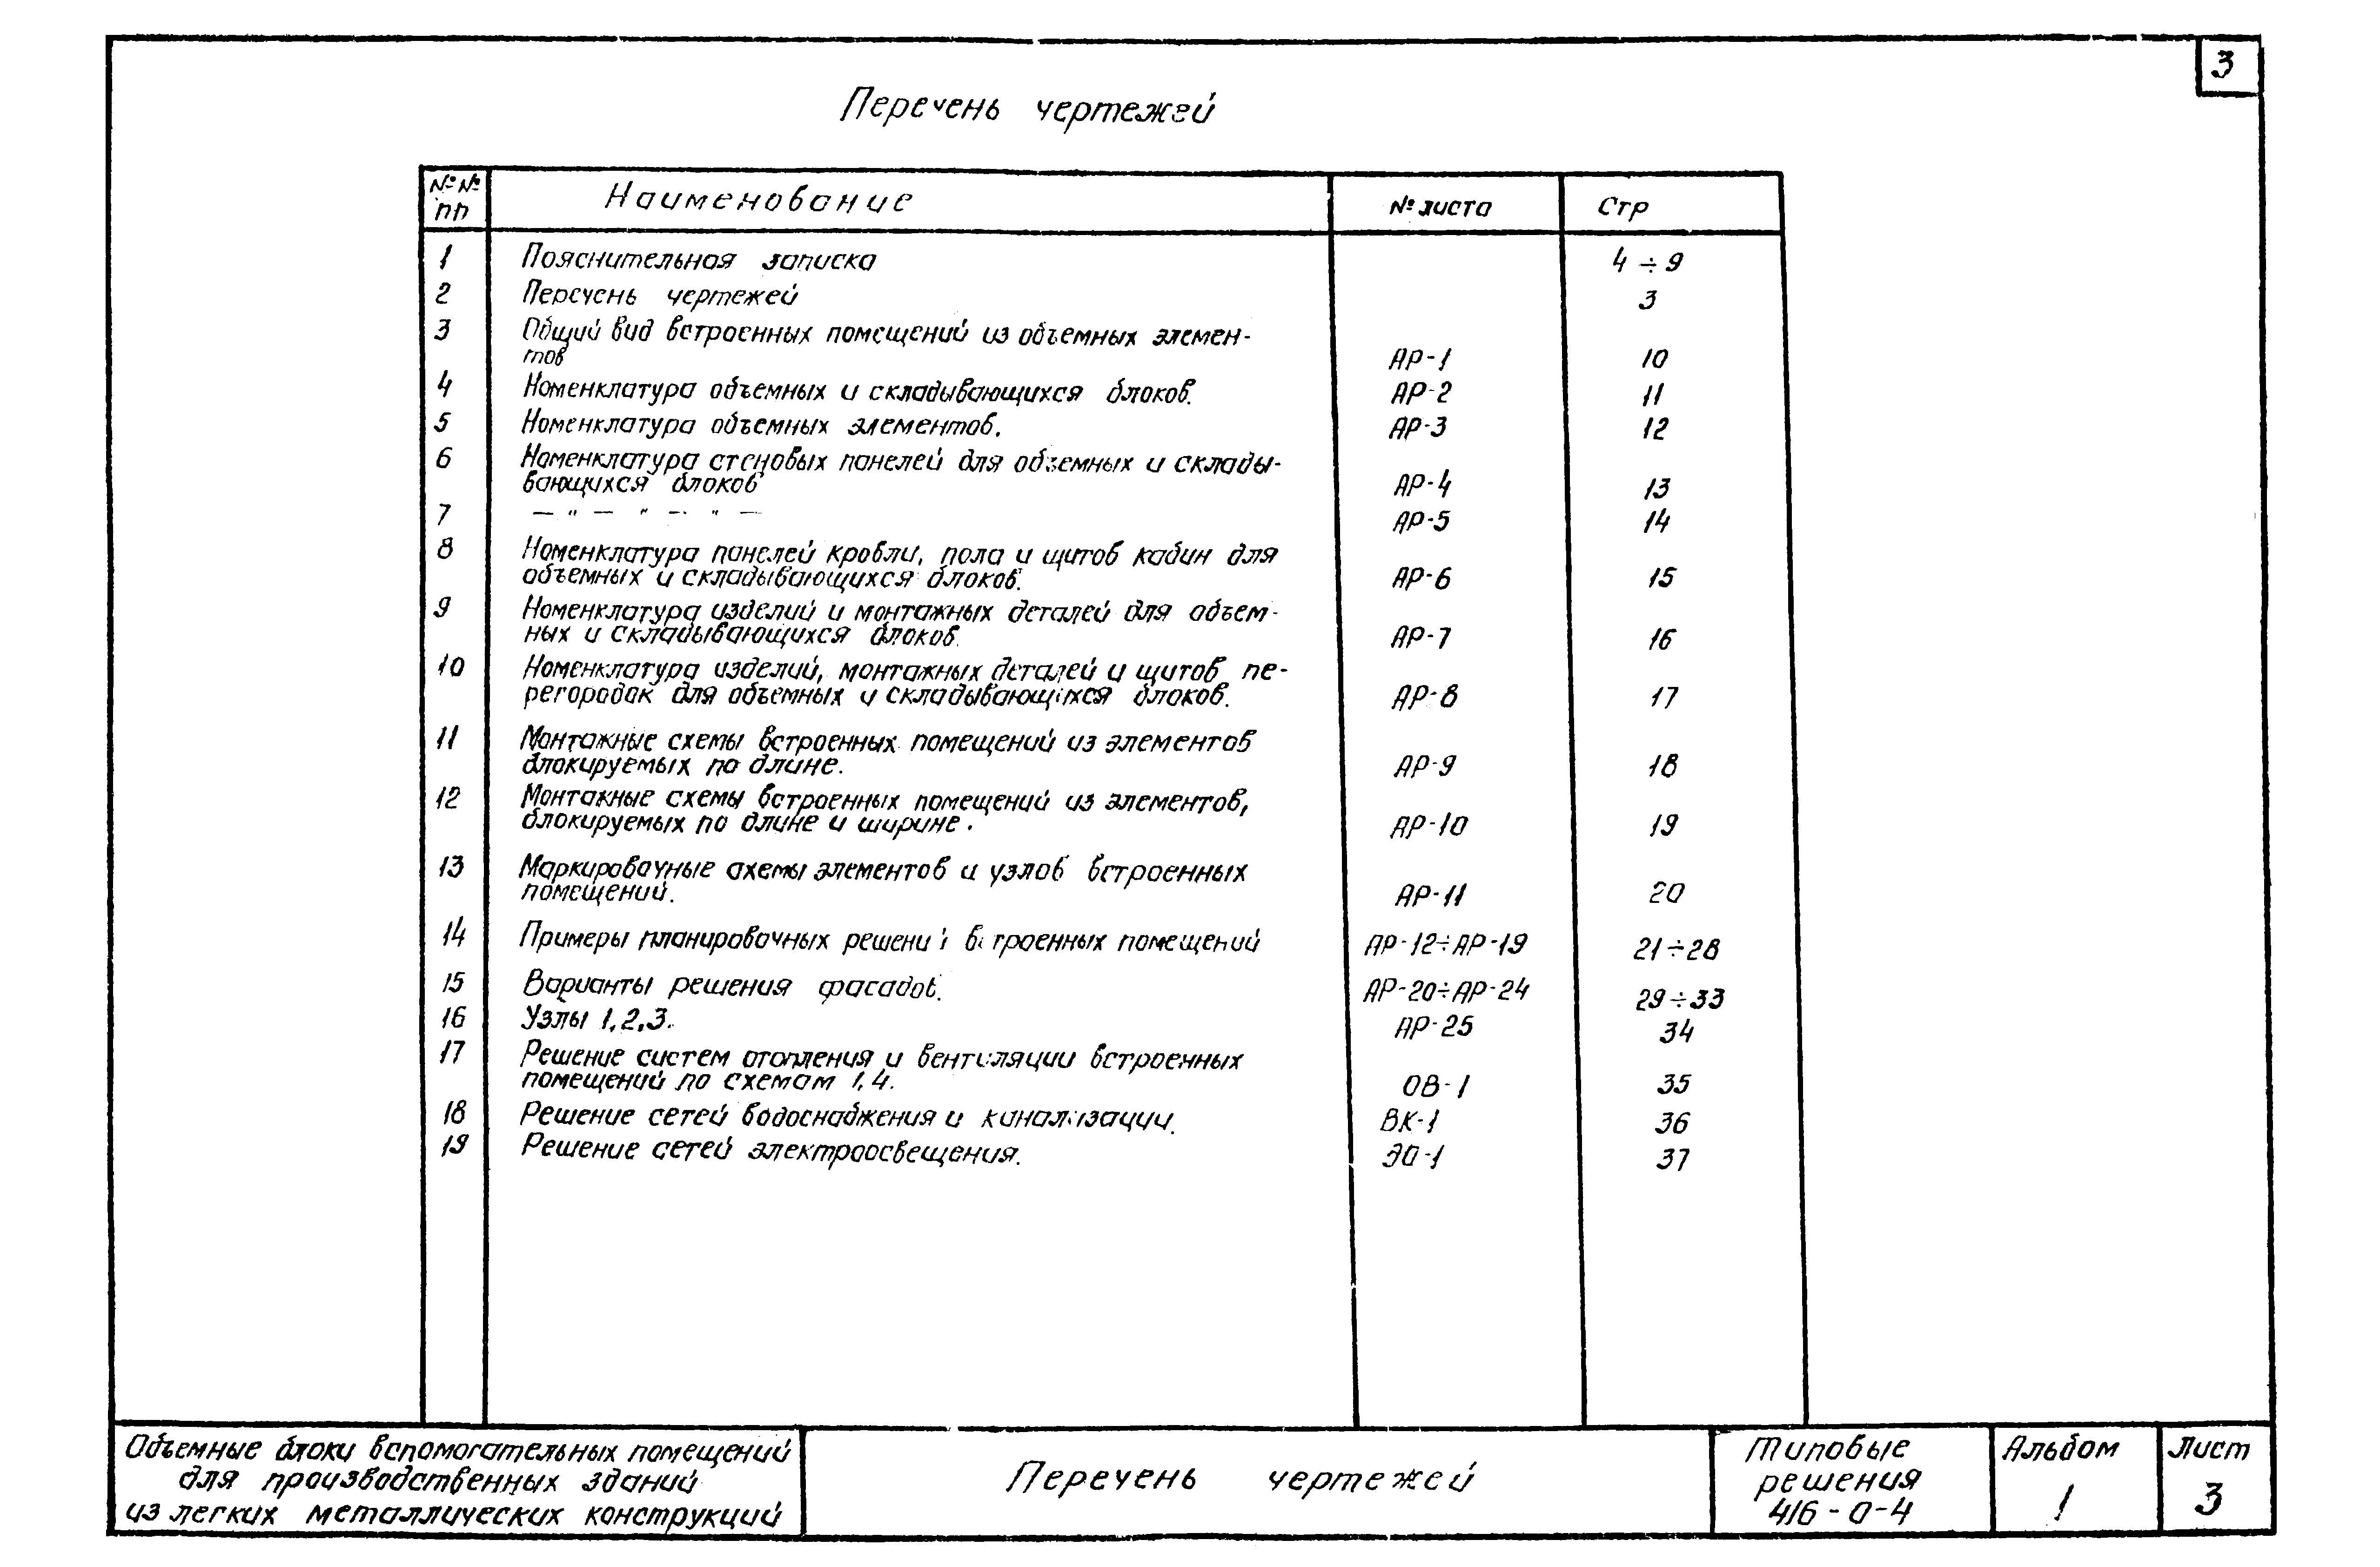 3
Перечень чертежей
№№ пп Наименование № листа Стр
1 Пояснительная записка 4÷9
2 Перечень чертежей 3
3 Общий вид встроенных помещений из объемных элемен-
тов АР-1 10
4 Номенклатура объемных и складывающихся блоков. АР-2 11
5 Номенклатура объемных элементов. АР-3 12
6 Номенклатура стеновых панелей для объемных и склады-
вающихся блоков АР-4 13
7 — " — " — " — АР-5 14
8 Номенклатура панелей кровли, пола и щитов кабин для
объемных и складывающихся блоков. АР-6 15
9 Номенклатура изделий и монтажных деталей для объем-
ных и складывающихся блоков. АР-7 16
10 Номенклатура изделий, монтажных деталей и щитов пе-
регородок для объемных и складывающихся блоков. АР-8 17
11 Монтажные схемы встроенных помещений из элементов
блокируемых по длине. АР-9 18
12 Монтажные схемы встроенных помещений из элементов,
блокируемых по длине и ширине. АР-10 19
13 Маркировочные схемы элементов и узлов встроенных
помещений. АР-11 20
14 Примеры планировочных решений встроенных помещений АР-12÷АР-19 21÷28
15 Варианты решения фасадов. АР-20÷АР-24 29÷33
16 Узлы 1,2,3. АР-25 34
17 Решение систем отопления и вентиляции встроенных
помещений по схемам 1,4. ОВ-1 35
18 Решение сетей водоснабжения и канализации. ВК-1 36
19 Решение сетей электроосвещения. ЭО-1 37
Объемные блоки вспомогательных помещений
для производственных зданий
из легких металлических конструкций
Перечень чертежей
Типовые
решения
416-0-4
Альбом
1
Лист
3